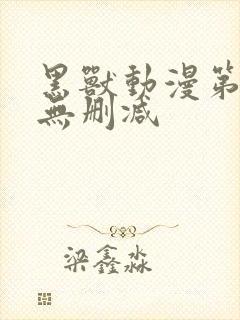 黑獸動漫第
無刪减
梁鑫淼